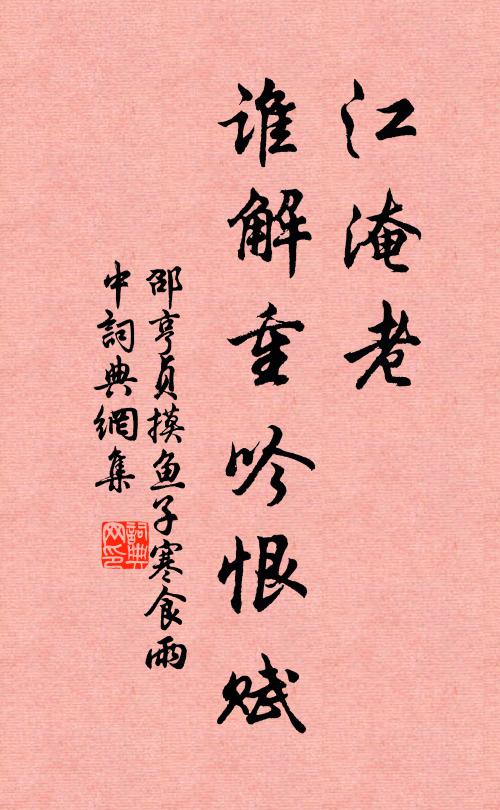 江淹老
谁解重吟恨赋
邵亨贞摸鱼子寒食雨
中词典網集
詞典网印